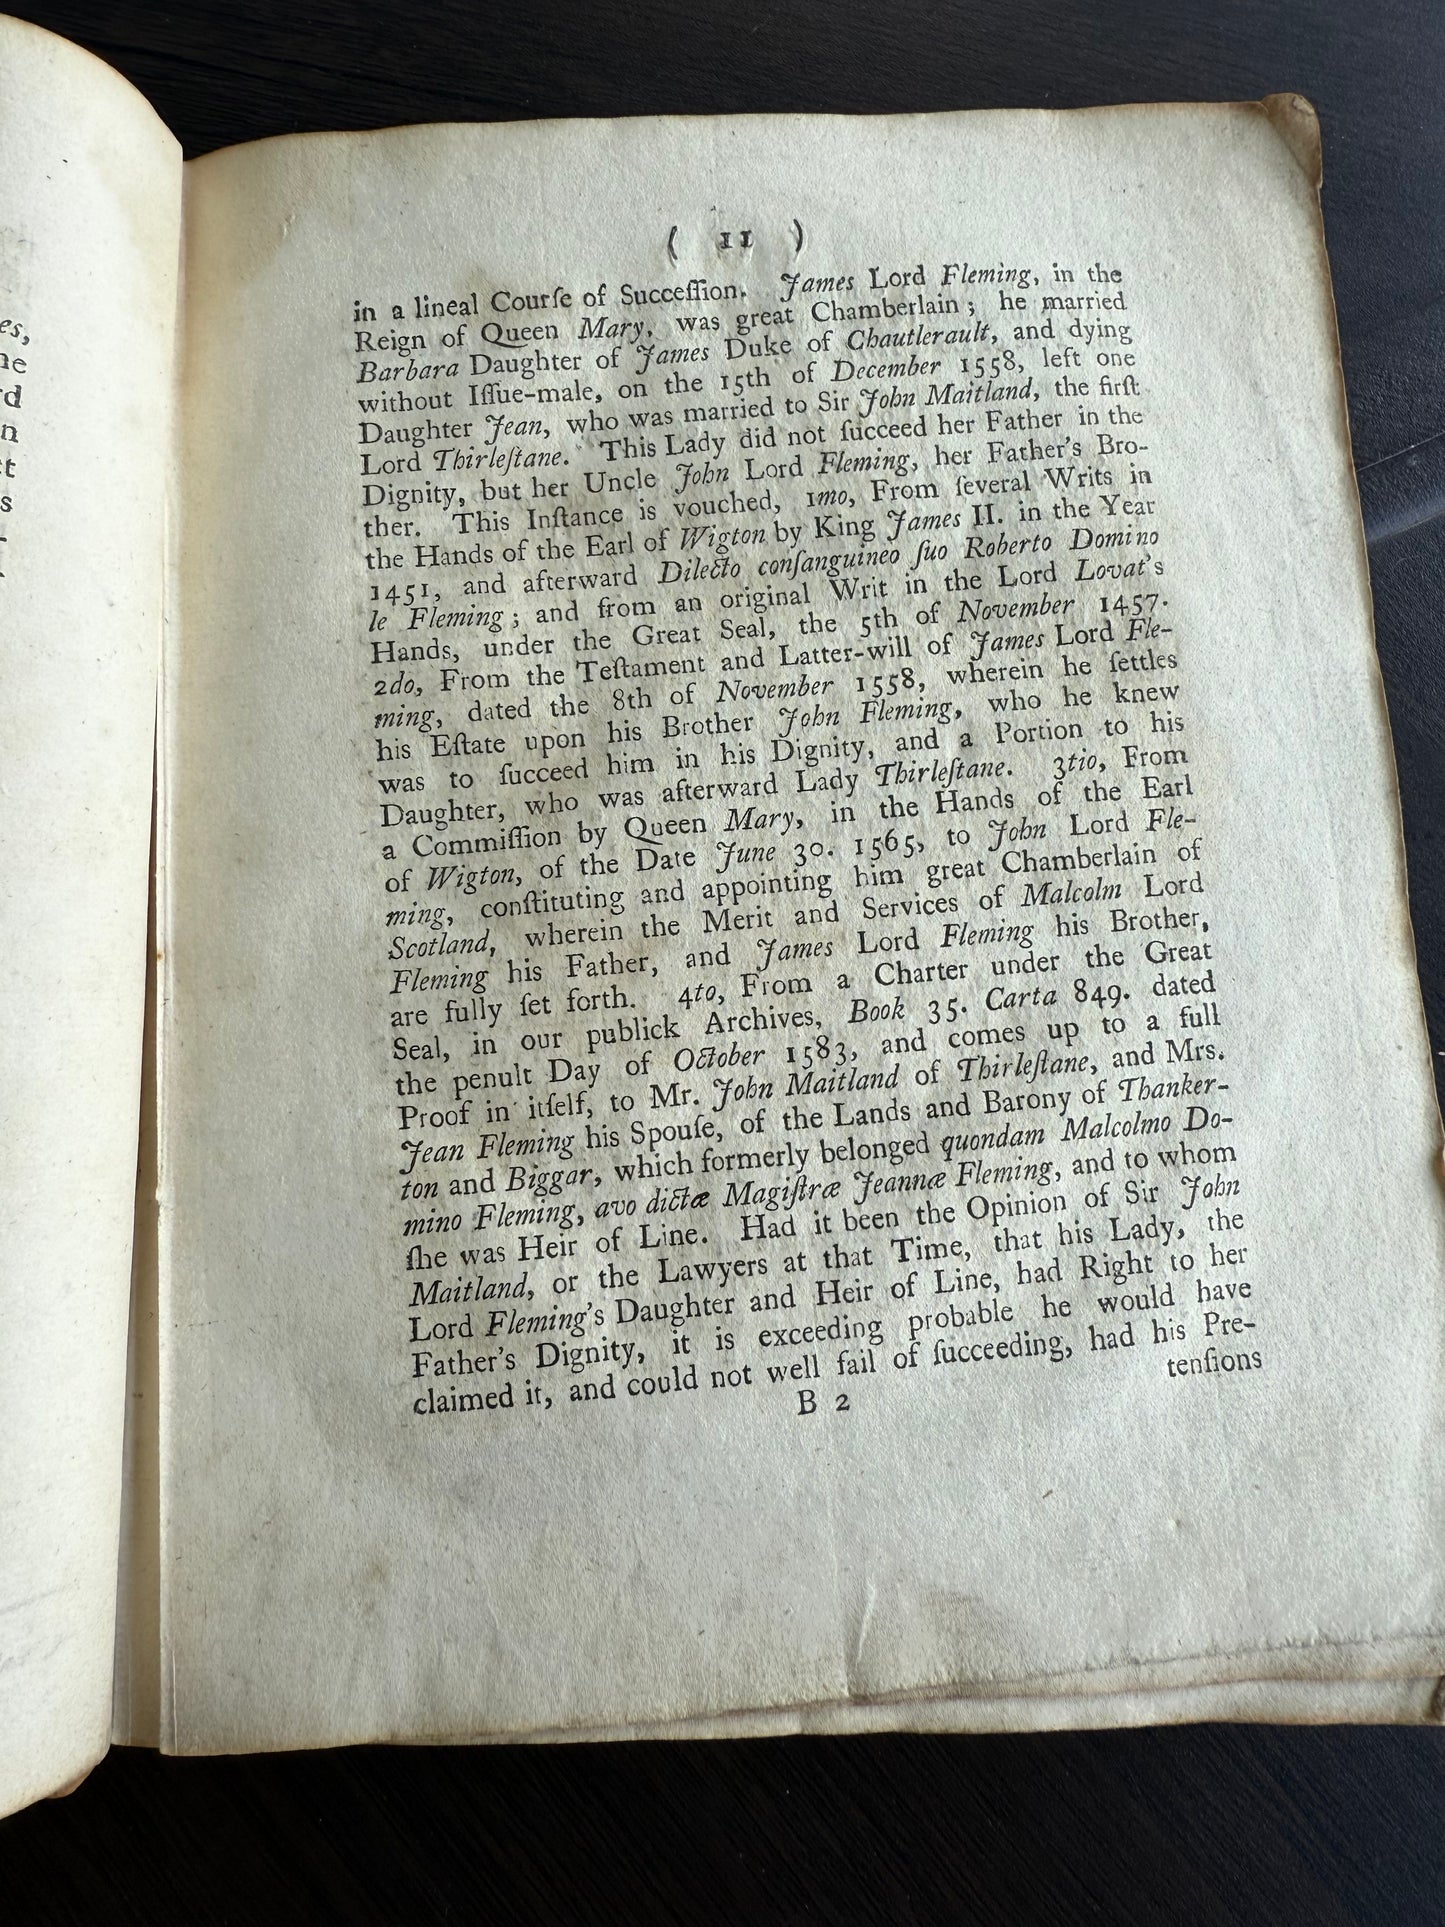 es,
ne
rd
n
ct
s
( 11 )
in a lineal Courſe of Succeſſion. James Lord Fleming, in the
Reign of Queen Mary, was great Chamberlain; he married
Barbara Daughter of James Duke of Chautlerault, and dying
without Iſſue-male, on the 15th of December 1558, left one
Daughter Jean, who was married to Sir John Maitland, the firſt
Lord Thirleſtane. This Lady did not ſucceed her Father in the
Dignity, but her Uncle John Lord Fleming, her Father's Bro-
ther. This Inſtance is vouched, 1mo, From ſeveral Writs in
the Hands of the Earl of Wigton by King James II. in the Year
1451, and afterward Dilecto conſanguineo ſuo Roberto Domino
le Fleming; and from an original Writ in the Lord Lovat's
Hands, under the Great Seal, the 5th of November 1457.
2do, From the Teſtament and Latter-will of James Lord Fle-
ming, dated the 8th of November 1558, wherein he ſettles
his Eſtate upon his Brother John Fleming, who he knew
was to ſucceed him in his Dignity, and a Portion to his
Daughter, who was afterward Lady Thirleſtane. 3tio, From
a Commiſſion by Queen Mary, in the Hands of the Earl
of Wigton, of the Date June 30. 1565, to John Lord Fle-
ming, conſtituting and appointing him great Chamberlain of
Scotland, wherein the Merit and Services of Malcolm Lord
Fleming his Father, and James Lord Fleming his Brother,
are fully ſet forth. 4to, From a Charter under the Great
Seal, in our publick Archives, Book 35. Carta 849. dated
the penult Day of October 1583, and comes up to a full
Proof in itſelf, to Mr. John Maitland of Thirleſtane, and Mrs.
Jean Fleming his Spouſe, of the Lands and Barony of Thanker-
ton and Biggar, which formerly belonged quondam Malcolmo Do-
mino Fleming, avo dictæ Magiſtræ Jeannæ Fleming, and to whom
ſhe was Heir of Line. Had it been the Opinion of Sir John
Maitland, or the Lawyers at that Time, that his Lady, the
Lord Fleming's Daughter and Heir of Line, had Right to her
Father's Dignity, it is exceeding probable he would have
claimed it, and could not well fail of ſucceeding, had his Pre-
tenſions
B 2